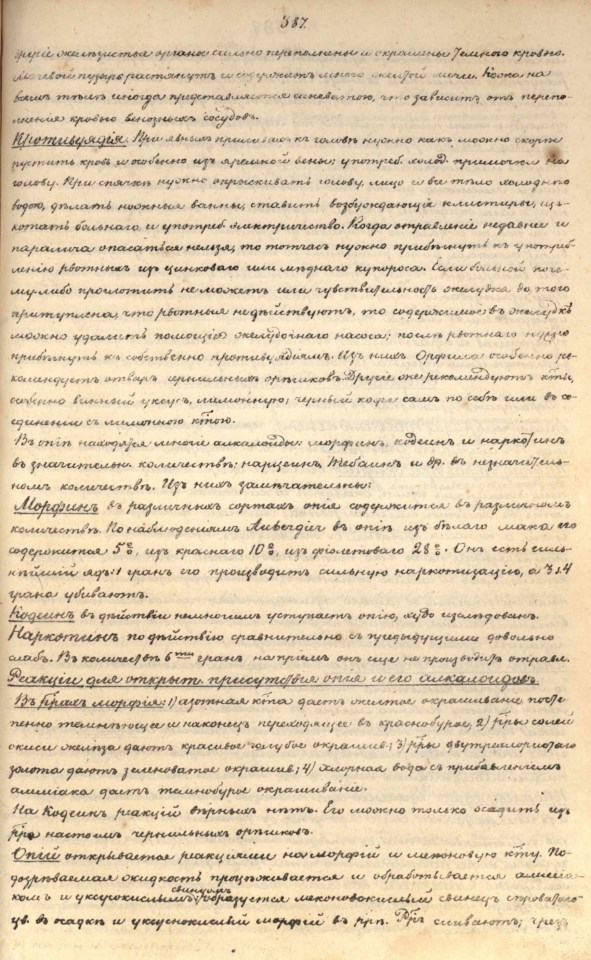 387.
другіе железистые органы сильно переполнены и окрашены темного кровью.
Мочевой пузырь растянутъ и содержитъ много желтой мочи. Кожа на
всемъ тѣлѣ иногда представляется синеватою, что зависитъ отъ перепо-
лненія кровью венозныхъ сосудовъ.
Противуядія. При явныхъ приливахъ къ головѣ нужно какъ можно скорѣе
пустить кровь и особенно изъ яремной вены; употреб. холод. примочки на
голову. При спячкѣ нужно опрыскивать голову, лицо и все тѣло холодною
водою, дѣлать ножныя ванны, ставить возбуждающіе клистиры, ще-
котать больнаго и употреб. электричество. Когда отравленіе недавнее и
паралича опасаться нельзя, то тотчасъ нужно прибѣгнуть къ употреб-
ленію рвотныхъ изъ цинковаго или мѣднаго купороса. Если больной поче-
му либо проглотить не можетъ или чувствительность желудка до того
притуплена, что рвотныя не дѣйствуютъ, то содержимое въ желудкѣ
можно удалить помощію желудочнаго насоса; послѣ рвотнаго нужно
прибѣгнуть къ собственно противуядіямъ. Изъ нихъ Орфила особенно ре-
комендуетъ отваръ чернильныхъ орѣшковъ. Другіе же рекомендуютъ к̃ты,
особенно винный уксусъ, лимонную; черный кофе самъ по себѣ или въ со-
единеніи съ лимонною к̃тою.
Въ опіѣ находятся многіе алкалоиды: морфинъ, кодеинъ и наркотинъ
въ значительн. количествѣ; нарцеинъ, тебаинъ и др. въ незначитель-
номъ количествѣ. Изъ нихъ замѣчательны:
Морфинъ въ различныхъ сортахъ опія содержится въ различномъ
количествѣ. По наблюденіямъ въ опіѣ изъ бѣлаго мака его
содержится 5%, изъ краснаго 10%, изъ фіолетоваго 28%. Онъ есть силь-
нѣйшій ядъ: 1 гранъ его производитъ сильную наркотизацію, а 3 и 4
грана убиваютъ.
Кодеинъ въ дѣйствіи немногимъ уступаетъ опію, худо изслѣдованъ.
Наркотинъ по дѣйствію сравнительно съ предыдущими довольно
слабъ. Въ количествѣ 6ти гранъ на пріемъ онъ еще не производитъ отравл.
Реакціи для открыт. присутствія опія и его алкалоидовъ.
Въ р̃рахъ морфія: 1) азотная к̃та даетъ желтое окрашиваніе посте-
пенно темнѣющее и наконецъ переходящее въ краснобурое, 2) р̃ры солей
окиси желѣза даютъ красивое голубое окрашив; 3) р̃ры двутрехлористаго
золота даютъ зеленоватое окрашив; 4) хлорная вода съ прибавленіемъ
амміака даетъ темнобурое окрашиваніе.
На Кодеинъ реакцій вѣрныхъ нѣтъ. Его можно только осадить изъ
р̃ра настоемъ чернильныхъ орѣшковъ.
Опій открывается реакціями на морфій и меконовую к̃ту. По-
дозрѣваемая жидкость процѣживается и обработывается амміа-
комъ и уксуснокислымъ свинцомъ; образуется меконовокислый свинецъ
въ осадкѣ и уксуснокислый морфій въ р̃рѣ. Р̃ръ сливаютъ; чрезъ